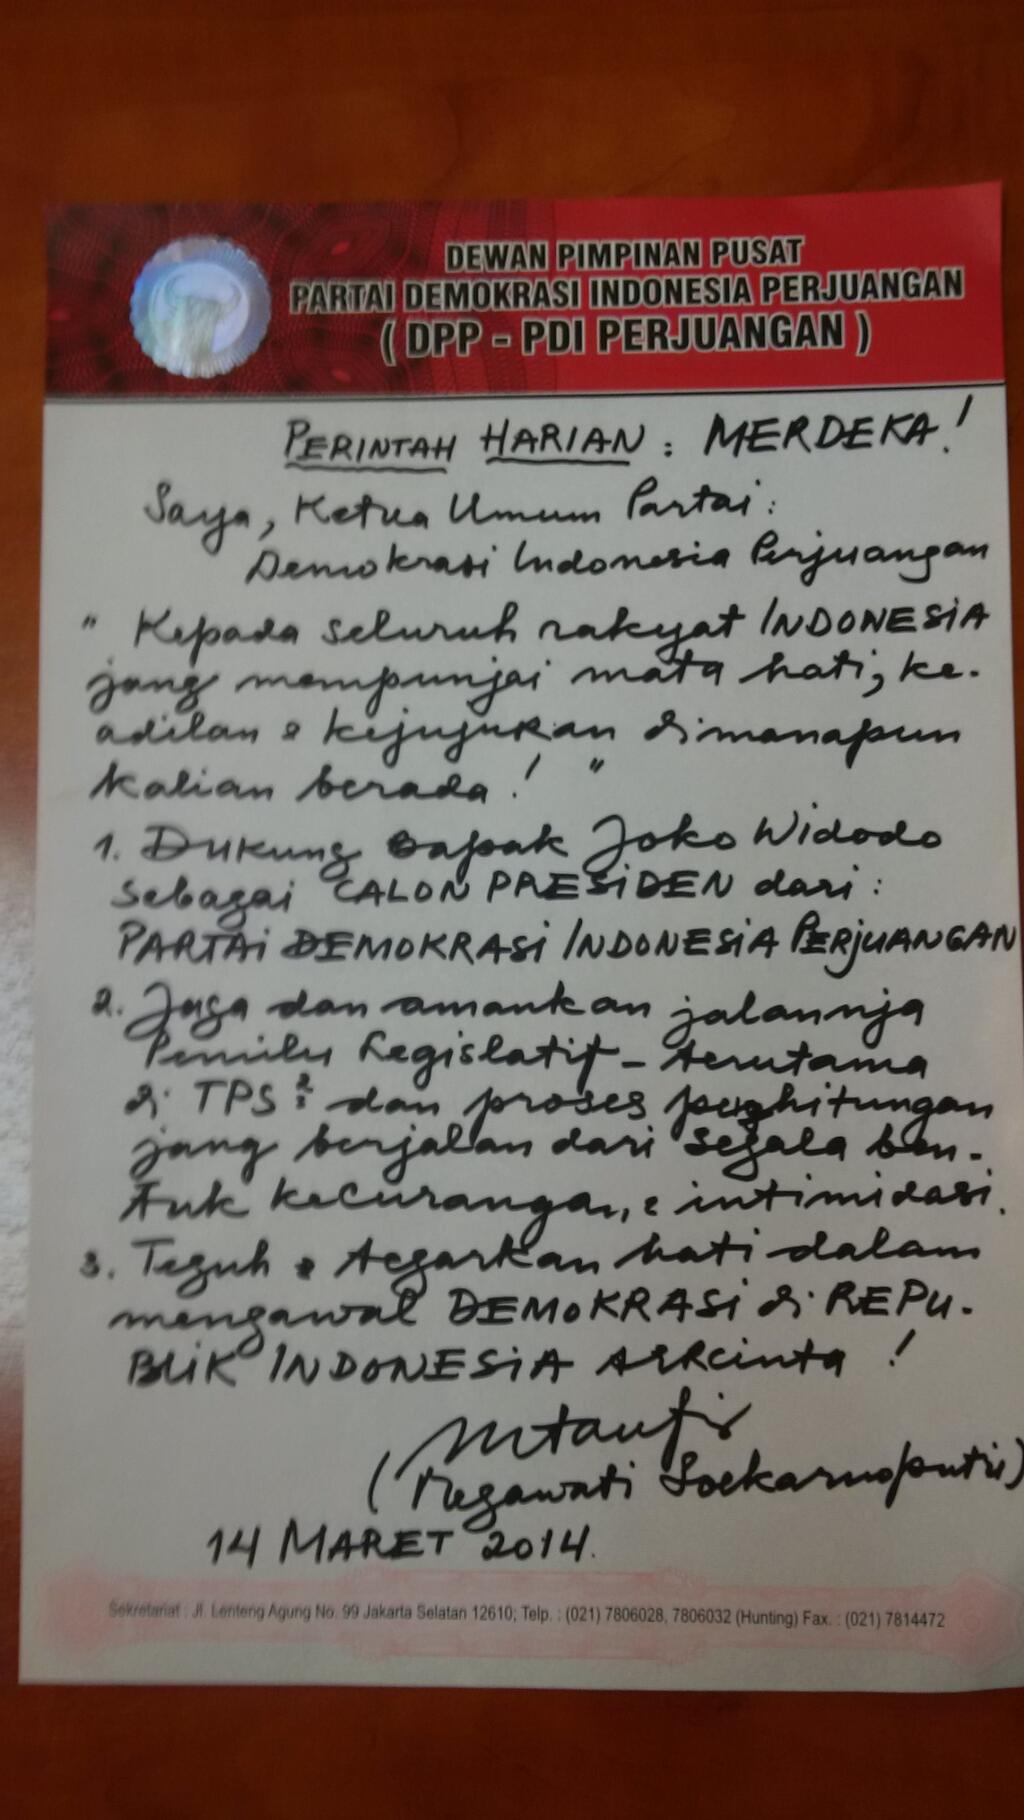 DEWAN PIMPINAN PUSAT
PARTAI DEMOKRASI INDONESIA PERJUANGAN
( DPP - PDI PERJUANGAN )
PERINTAH HARIAN : MERDEKA!
Saya, Ketua Umum Partai:
Demokrasi Indonesia Perjuangan
" Kepada seluruh rakyat INDONESIA
jang mempunjai mata hati, ke-
adilan & kejujuran dimanapun
kalian berada! "
1. Dukung Bapak Joko Widodo
sebagai CALON PRESIDEN dari:
PARTAI DEMOKRASI INDONESIA PERJUANGAN
2. Jaga dan amankan jalannja
Pemilu Legislatif - terutama
di TPS² dan proses penghitungan
jang berjalan dari segala ben-
tuk kecurangan, & intimidasi.
3. Teguh & tegarkan hati dalam
mengawal DEMOKRASI di REPU-
BLIK INDONESIA tercinta !
(Megawati Soekarnoputri)
14 MARET 2014.
Sekretariat : Jl. Lenteng Agung No. 99 Jakarta Selatan 12610; Telp. : (021) 7806028, 7806032 (Hunting) Fax. : (021) 7814472